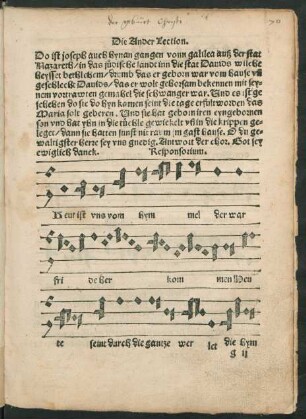 Die Ander Lection.
Do ist joseph auch hynan gangen vonn galilea auß der stat
Nazareth/in das jüdische lande inn die stat Dauids wilche
heysset bethlehem/ darumb das er geborn war vom hause vñ
geschlecht Dauids/das er wolt gehorsam bekennen mit sey-
nem vortrawten gemahel die schwanger war. Vnd es ist ge
schehen do sie do hyn komen seint die tage erfult worden das
Maria solt geberen. Vnd sie hat geboren iren eyngebornen
son vnd hat yhn in die tüchle gewickelt vñ in die krippen ge-
leget/ dann sie hatten sunst nit raum im gast hause. O du ge-
waltigster herre sey vns gnedig. Antwort der chor. Got sey
ewiglich danck. Responsorium.
Heut ist vns vom hym mel der war
fri de her kom men Heu
te seint durch die gantze wer let die hym
g ij